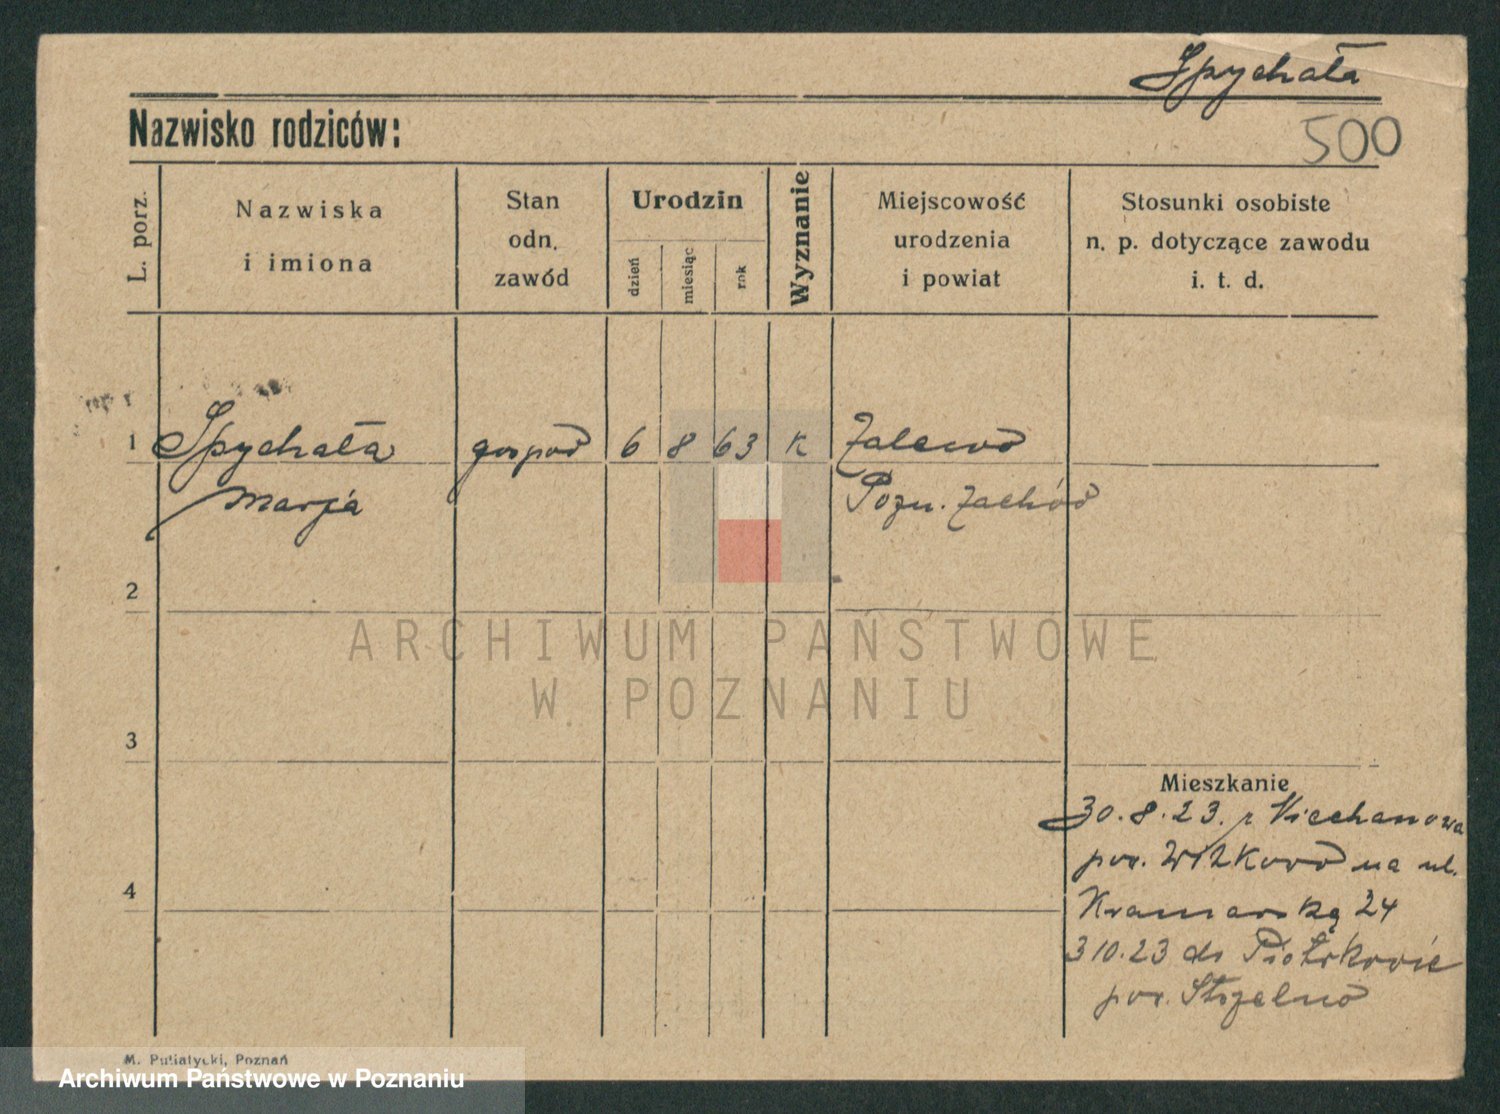 Spychała
Nazwisko rodziców:
500
L. porz.
Nazwiska
i imiona
Stan
odn.
zawód
Urodzin
dzień
miesiąc
rok
Wyznanie
Miejscowość
urodzenia
i powiat
Stosunki osobiste
n. p. dotyczące zawodu
i. t. d.
1 Spychała gospod 6 8 63 k Zalewo
Marja Pozn. Zachód
2
ARCHIWUM PAŃSTWOWE
W POZNANIU
3
Mieszkanie
30.8.23. z Niechanowa
pow. Witkowo na ul.
4
Kramarską 24
3 10.23 do Piotrkowic
pow. Strzelno
M. Putiatycki, Poznań
Archiwum Państwowe w Poznaniu